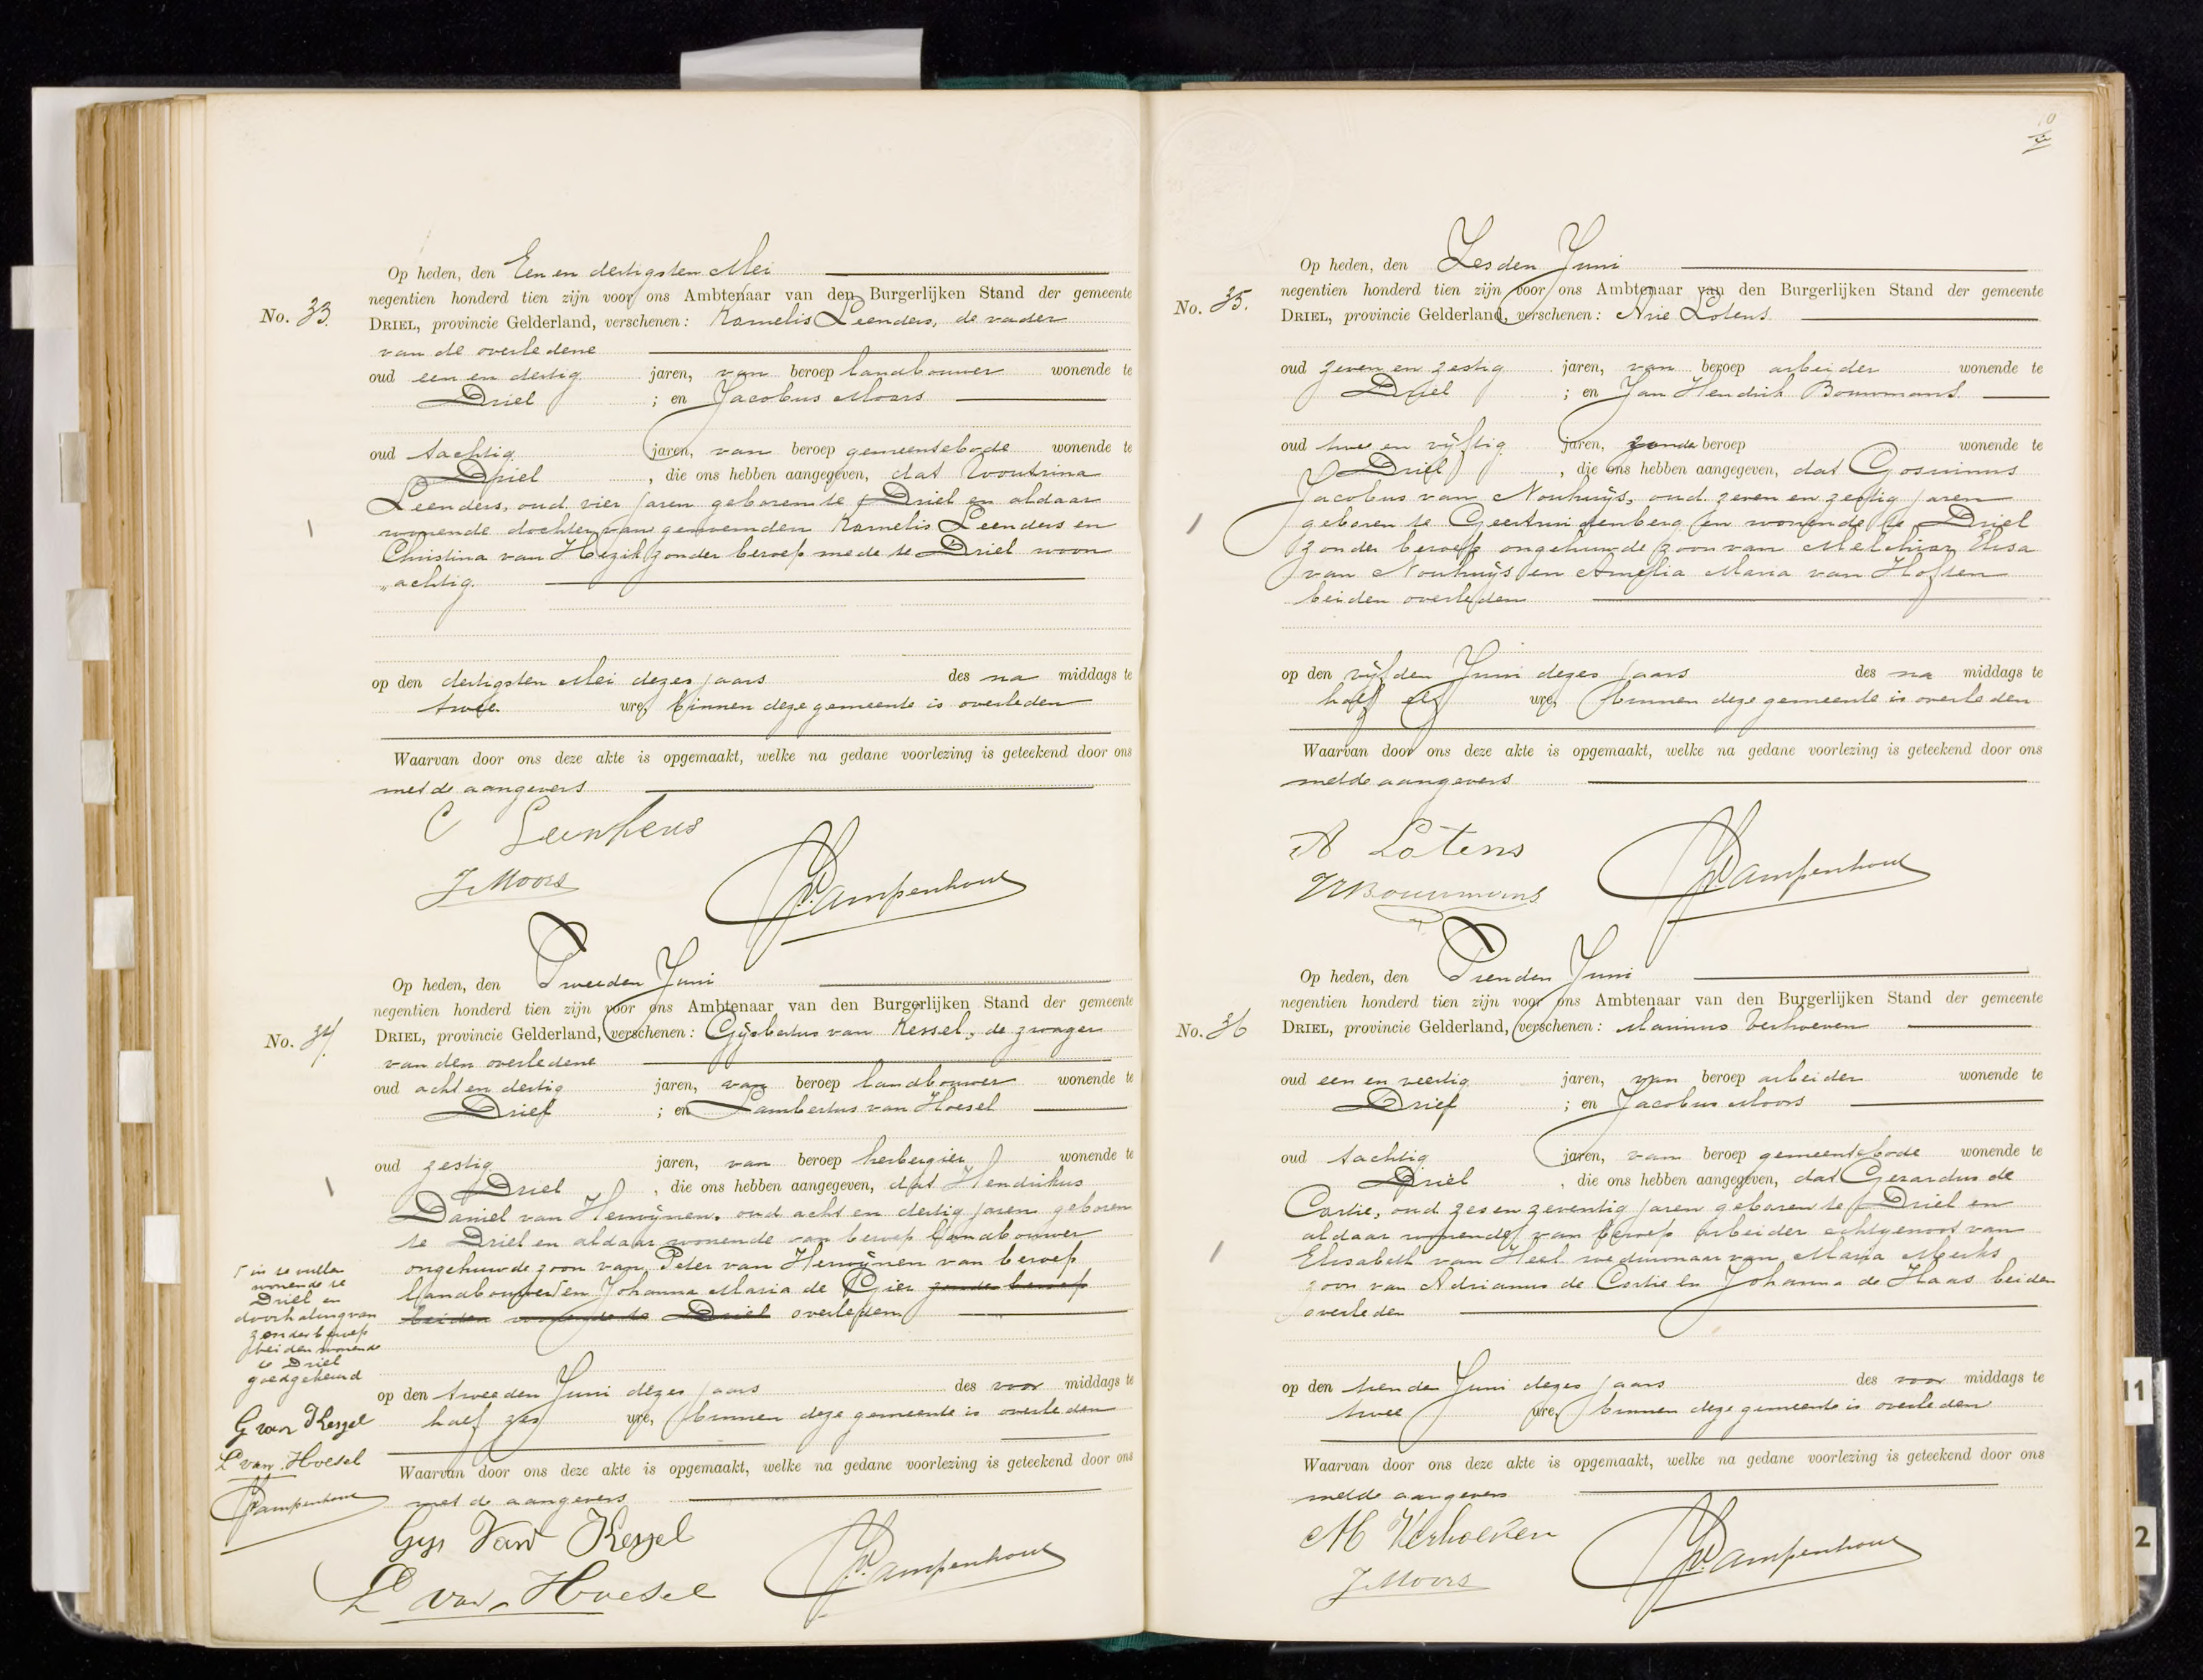 Op heden, den Een en dertigsten Mei
negentien honderd tien zijn voor ons Ambtenaar van den Burgerlijken Stand der gemeente
No. 33. DRIEL, provincie Gelderland, verschenen: Kornelis Leenders, de vader
van de overledene
oud een en dertig jaren, van beroep landbouwer wonende te
Driel ; en Jacobus Moors
oud tachtig jaren, van beroep gemeentebode wonende te
Driel , die ons hebben aangegeven, dat Woutrina
Leenders, oud vier jaren geboren te Driel en aldaar
wonende dochter van genoemden Kornelis Leenders en
Christina van Hezik zonder beroep mede te Driel woon
„achtig.
op den dertigsten Mei dezes jaars des na middags te
twee ure, binnen deze gemeente is overleden
Waarvan door ons deze akte is opgemaakt, welke na gedane voorlezing is geteekend door ons
met de aangevers
C Leenders
J. Moors
Pampenhout
Op heden, den Tweeden Juni
negentien honderd tien zijn voor ons Ambtenaar van den Burgerlijken Stand der gemeente
No. 34. DRIEL, provincie Gelderland, verschenen: Gijsbertus van Kessel, de zwager
van den overledene
oud acht en dertig jaren, van beroep landbouwer wonende te
Driel ; en Lambertus van Hoesel
oud zestig jaren, van beroep herbergier wonende te
Driel , die ons hebben aangegeven, dat Hendrikus
Daniel van Herwijnen, oud acht en dertig jaren geboren
te Driel en aldaar wonende van beroep landbouwer
ongehuwde zoon van Peter van Herwijnen van beroep
landbouwer en Johanna Maria de Gier zonder beroep
beiden wonende te Driel overleden
in te vullen
wonende te
Driel en
doorhaling van
zonder beroep
beiden wonende
te Driel
goedgekeurd
G van Kessel
L van Hoesel
Pampenhout
op den tweeden Juni dezes jaars des voor middags te
half zes ure, binnen deze gemeente is overleden
Waarvan door ons deze akte is opgemaakt, welke na gedane voorlezing is geteekend door ons
met de aangevers
Gijs Van Kessel
L van Hoesel
Pampenhout
Op heden, den Zesden Juni
negentien honderd tien zijn voor ons Ambtenaar van den Burgerlijken Stand der gemeente
No. 35. DRIEL, provincie Gelderland, verschenen: Arie Lotens
oud zeven en zestig jaren, van beroep arbeider wonende te
Driel ; en Jan Hendrik Bouwmans
oud twee en vijftig jaren, zonder beroep wonende te
Driel , die ons hebben aangegeven, dat Gosuinus
Jacobus van Nouhuijs, oud zeven en zestig jaren
geboren te Geertruidenberg en wonende te Driel
zonder beroep ongehuwde zoon van Melchior Elisa
van Nouhuijs en Amelia Maria van Hofsen
beiden overleden
op den vijfden Juni dezes jaars des na middags te
half elf ure, binnen deze gemeente is overleden
Waarvan door ons deze akte is opgemaakt, welke na gedane voorlezing is geteekend door ons
met de aangevers
A Lotens
JH Bouwmans
Pampenhout
Op heden, den Tienden Juni
negentien honderd tien zijn voor ons Ambtenaar van den Burgerlijken Stand der gemeente
No. 36 DRIEL, provincie Gelderland, verschenen: Marinus Verhoeven
oud een en veertig jaren, van beroep arbeider wonende te
Driel ; en Jacobus Moors
oud tachtig jaren, van beroep gemeentebode wonende te
Driel , die ons hebben aangegeven, dat Gerardus de
Cortie, oud zes en zeventig jaren geboren te Driel en
aldaar wonende van beroep arbeider echtgenoot van
Elisabeth van Heel weduwnaar van Maria Merks
zoon van Adrianus de Cortie en Johanna de Haas beiden
overleden
op den tienden Juni dezes jaars des voor middags te
twee ure, binnen deze gemeente is overleden
Waarvan door ons deze akte is opgemaakt, welke na gedane voorlezing is geteekend door ons
met de aangevers
M Verhoeven
J. Moors
Pampenhout
11
2